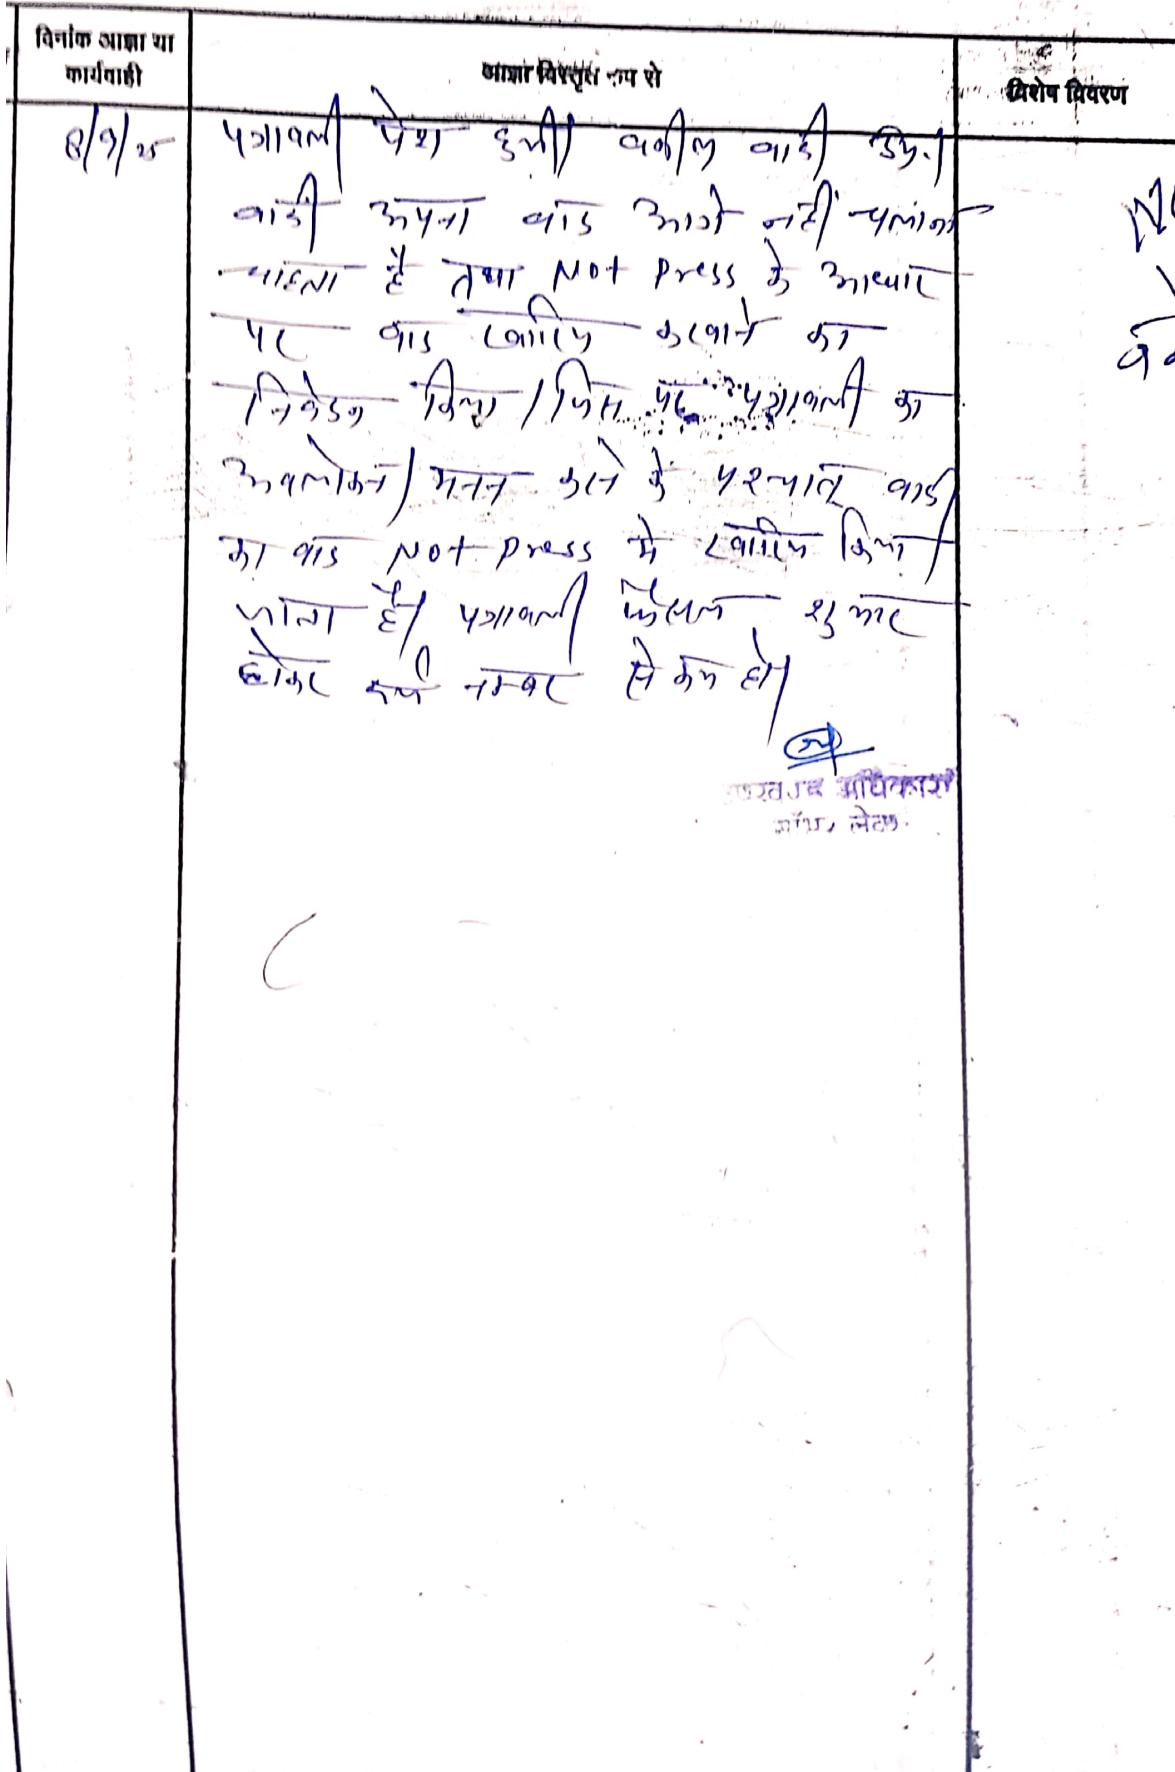 दिनांक आज्ञा या
कार्यवाही
आज्ञा विस्तृत रूप से
विशेष विवरण
8/9/25
पत्रावली पेश हुयी। वकील वादी उप.।
वादी अपना वाद आगे नहीं चलाना
चाहता है तथा Not Press के आधार
पर वाद खारिज करवाने का
निवेदन किया। जिस पर पत्रावली का
अवलोकन/मनन करने के पश्चात् वादी
का वाद Not Press में खारिज किया
जाता है। पत्रावली फैसल शुमार
होकर दर्ज नम्बर से कम हो।
उपखण्ड अधिकारी